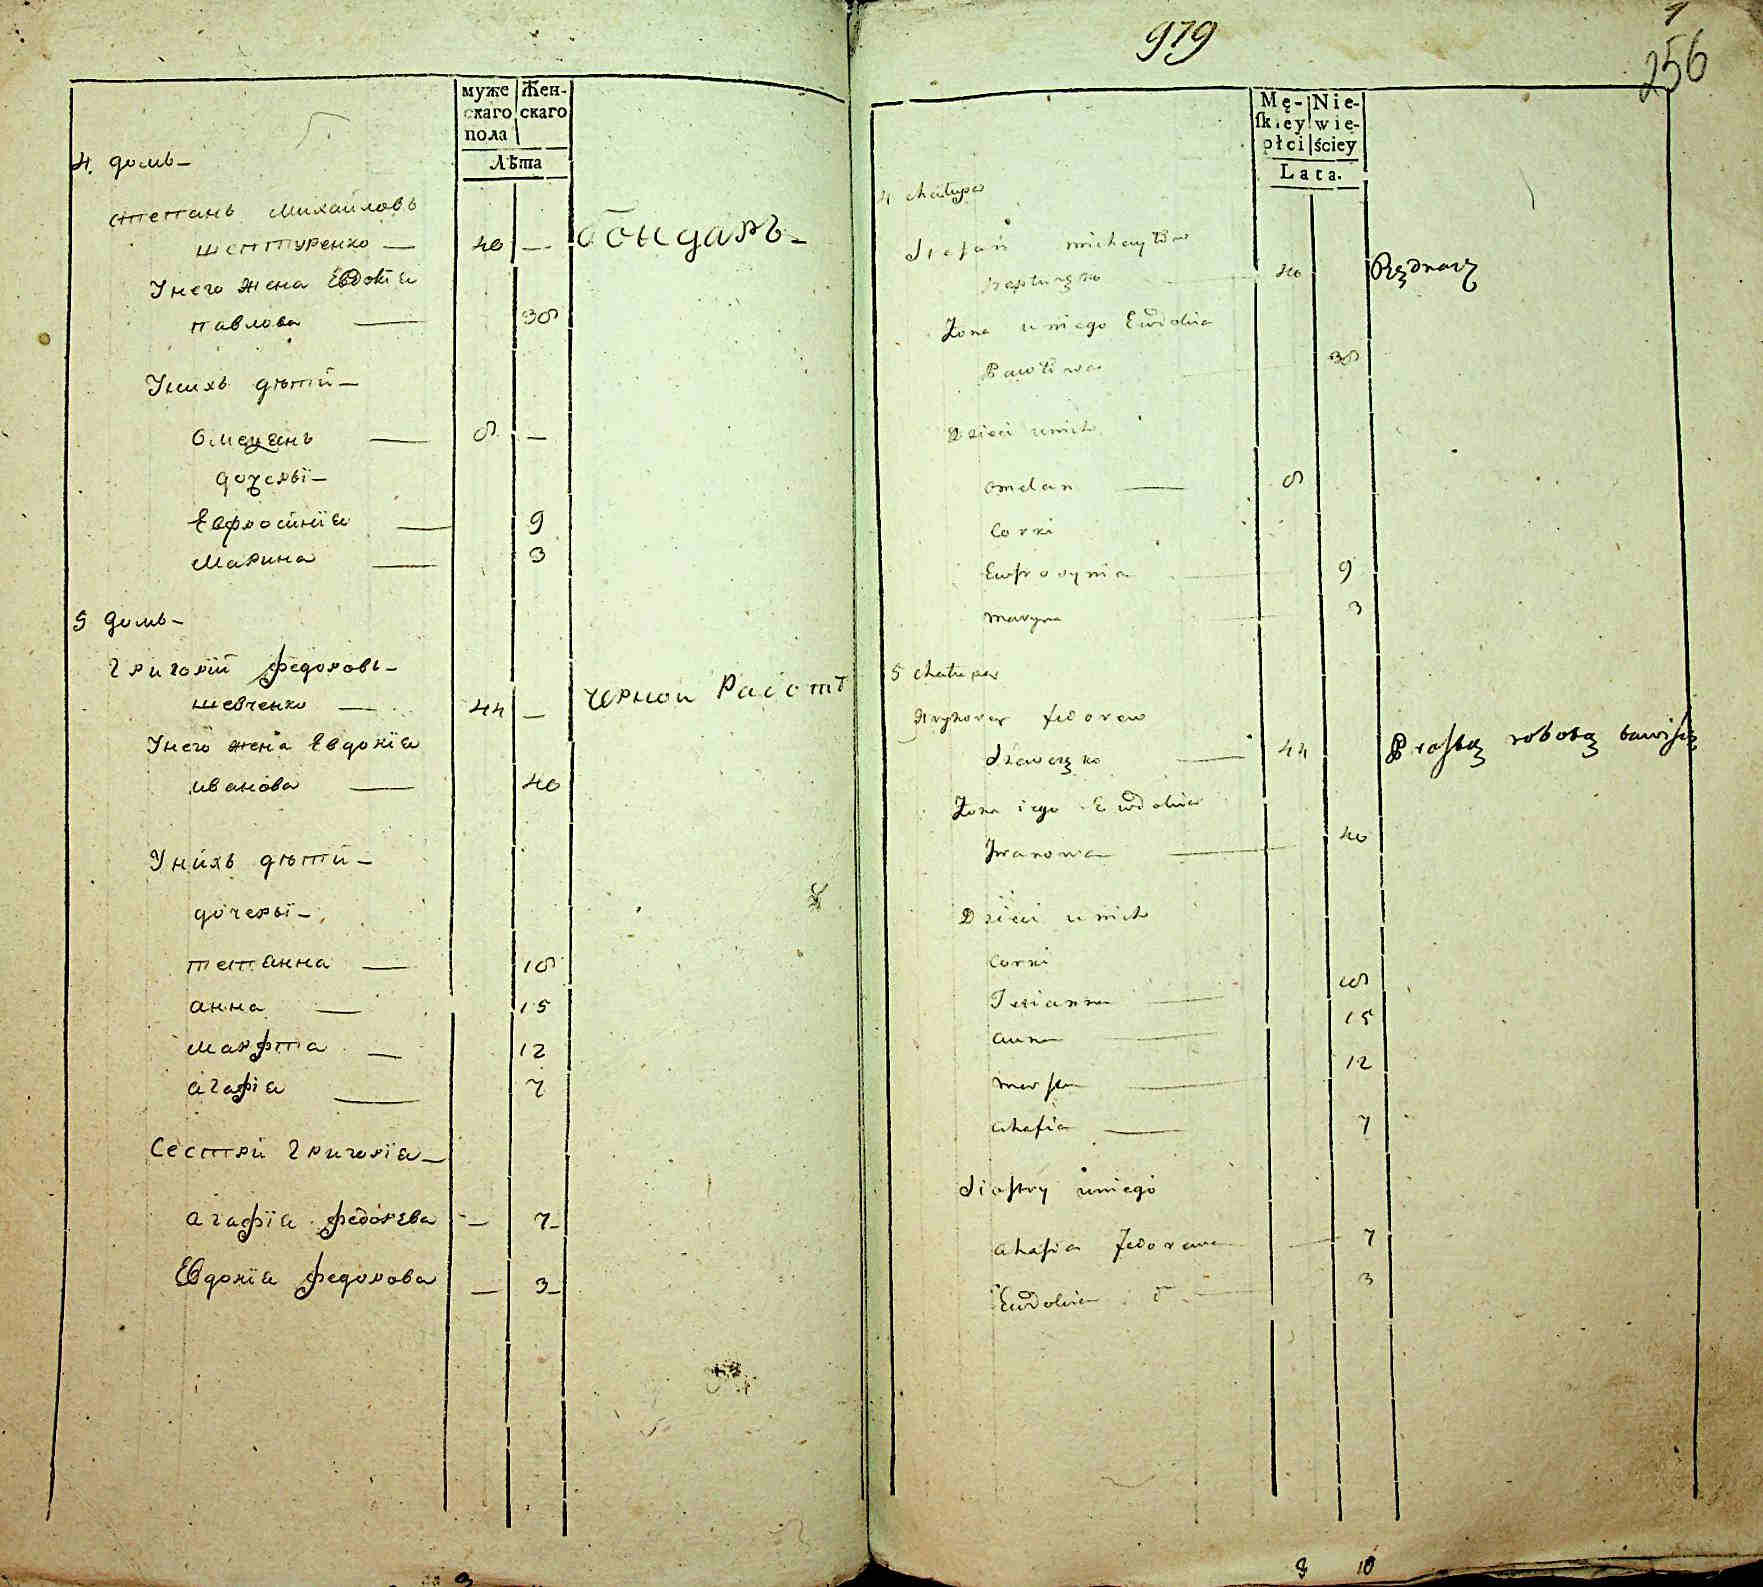 муже
скаго
пола
Жен-
скаго
Лѣта
4. домъ—
степанъ михайловъ
шептуренко — 40 — бондаръ—
Унего жена Евдокїа
павлова — 38
Унихъ дѣти—
Омелянъ — 8 —
дочерьї—
Евфросинїа — 9
Марина — 3
5 домъ—
Григорїй федоровъ—
шевченко — 44 — чорной работѣ
Унего жена Евдокїа
иванова — 40
Унихъ дѣти—
дочерьї—
тетїанна — 18
анна — 15
марфта — 12
агафїа — 7
Сестри Григорїа—
агафїа федорева — 7—
Евдокїа федорова — 3—
979
256
Mę-
ſkiey
płci
Nie-
wie-
ściey
Lata.
4 chałupa
Stefan michayłow
szepturęko — 40 Będnarz
Zona u niego Ewdokia
Pawłowa — 38
Dzieci unich
omelan — 8
Corki
Ewfrosynia — 9
maryna — 3
5 chałupa
Hryhorey fedorow
Szewczęko — 44 Proſtą robotą bawiſię
Zona iego Ewdokia
Jwanowa — 40
Dzieci unich
Corki
Tetianna — 18
anna — 15
marfta — 12
ahafia — 7
Sioſtry uniego
ahafia fedorowa — 7
Ewdokia — 3
8 10